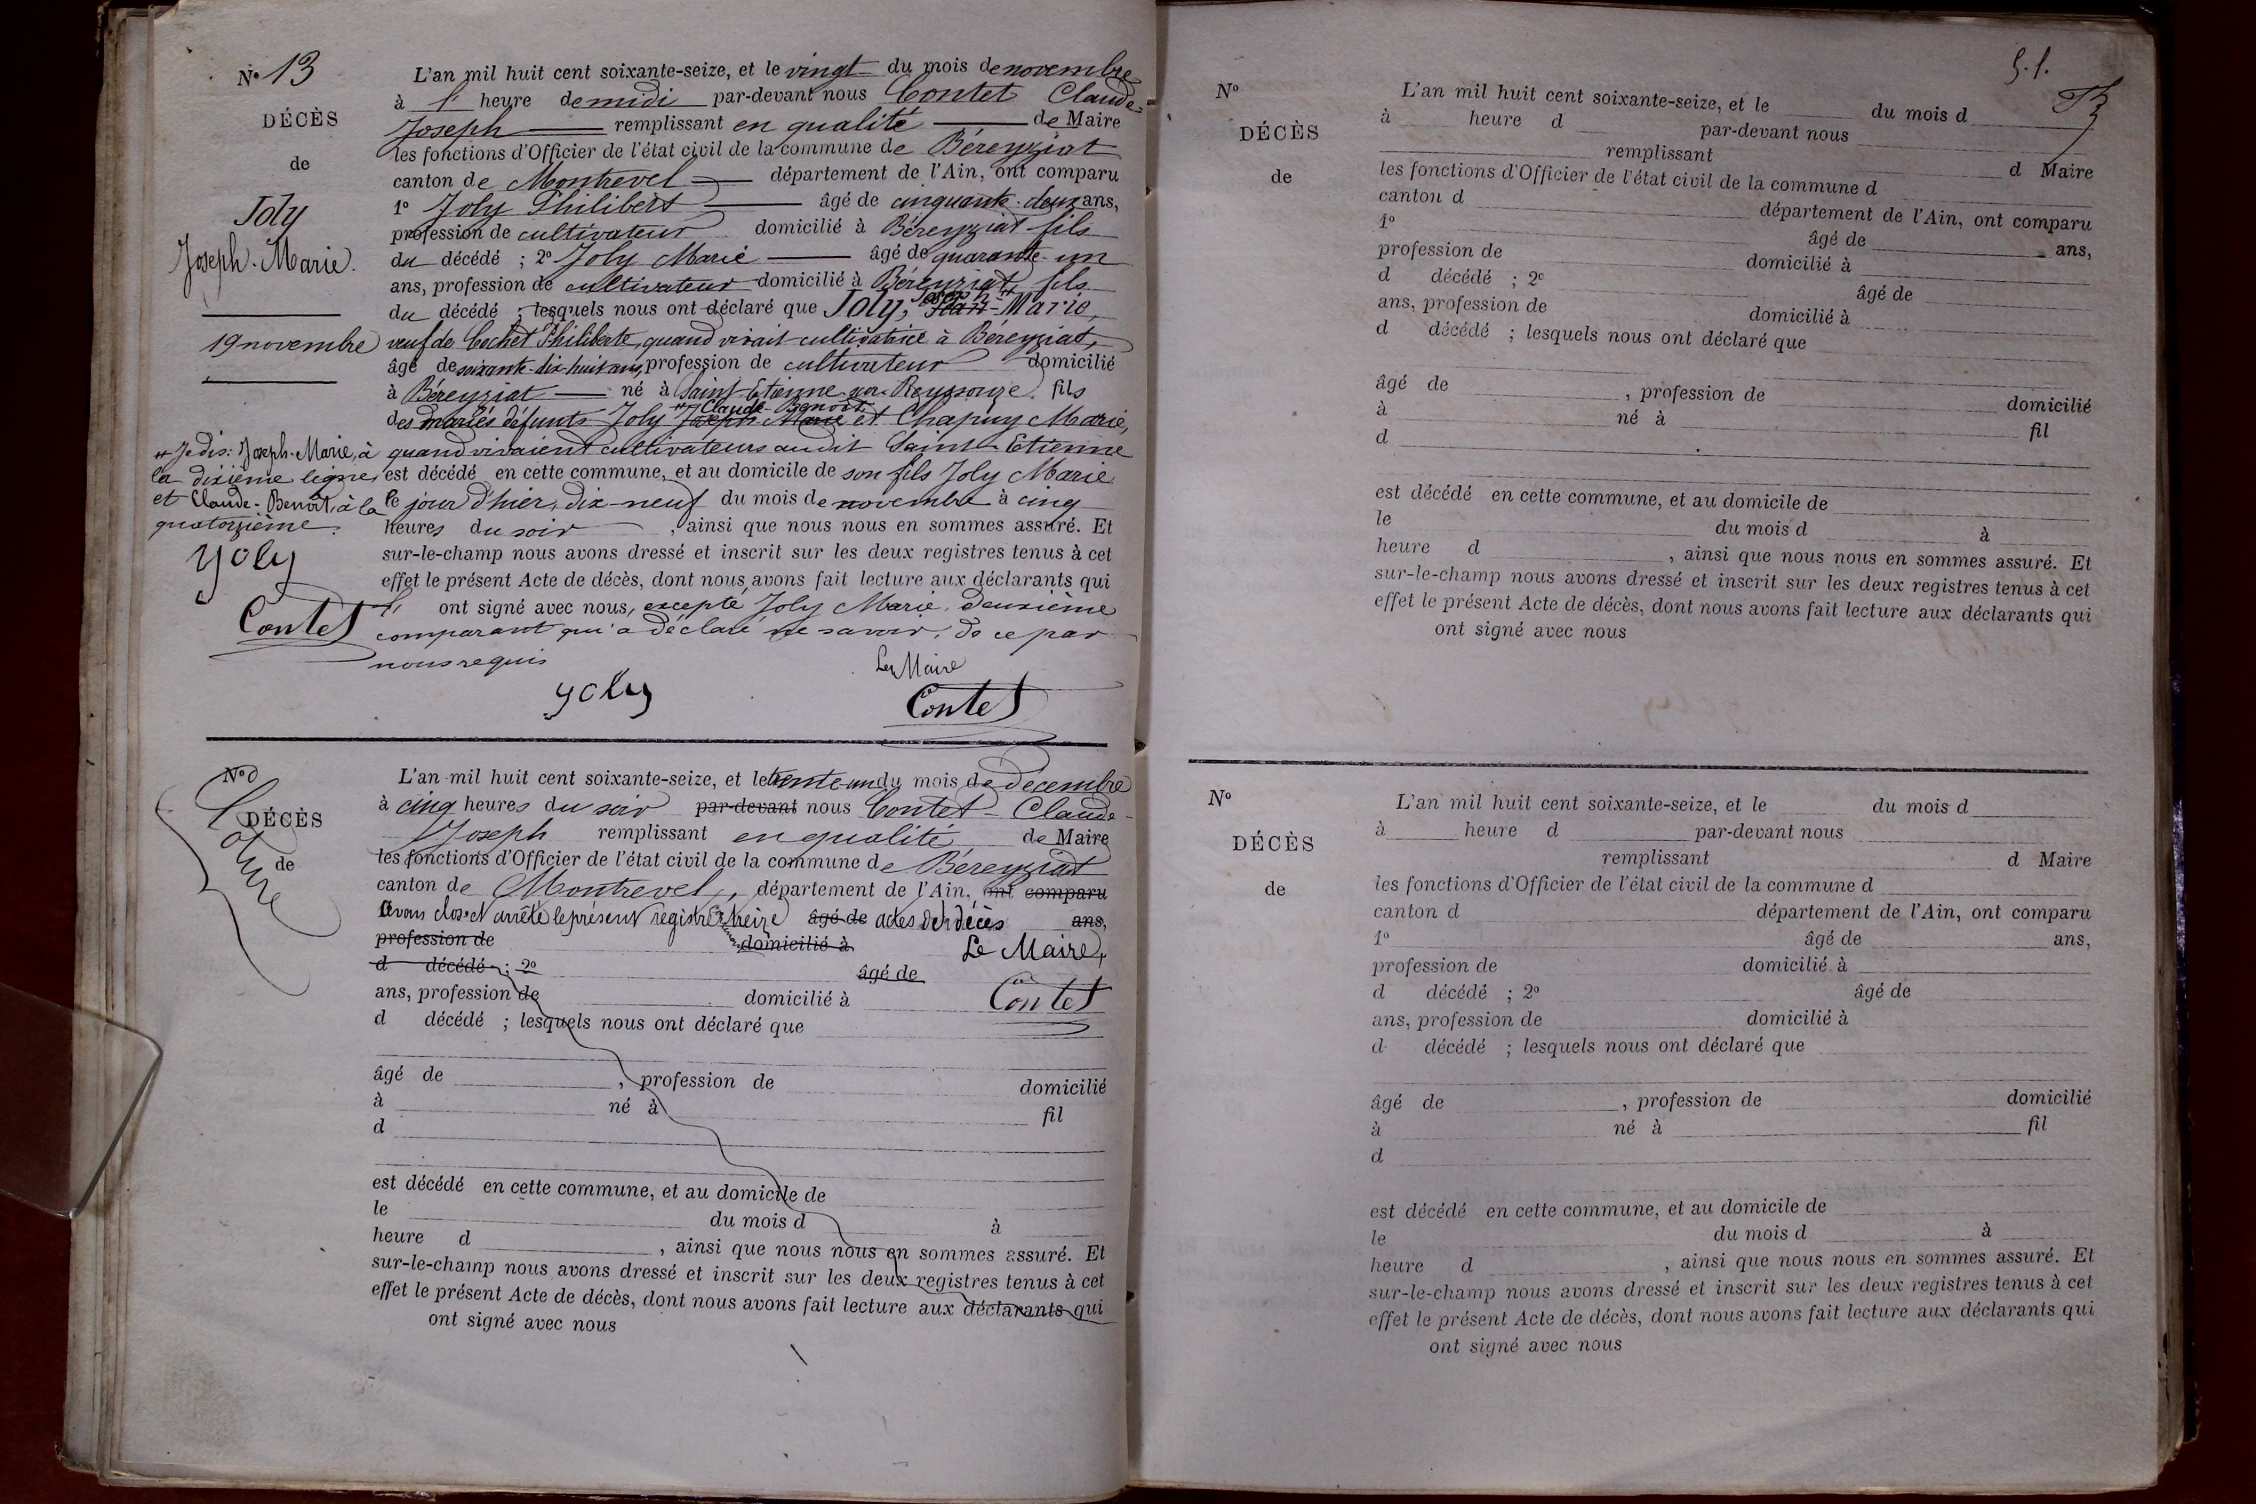 N° 13
DÉCÈS
de
Joly
Joseph-Marie.
19 novembre
# Je dis: Joseph-Marie, à
la dixième ligne,
et Claude-Benoît, à la
quatorzième.
Joly
Contet
L'an mil huit cent soixante-seize, et le vingt du mois de novembre
à heure de midi par-devant nous Contet Claude-
Joseph remplissant en qualité de Maire
les fonctions d'Officier de l'état civil de la commune de Béreyziat
canton de Montrevel département de l'Ain, ont comparu
1° Joly Philibert âgé de cinquante-deux ans,
profession de cultivateur domicilié à Béreyziat fils
du décédé ; 2° Joly Marie âgé de quarante-un
ans, profession de cultivateur domicilié à Béreyziat, fils
du décédé ; lesquels nous ont déclaré que Joly, Jean Joseph #-Marie,
veuf de Cochet Philiberte, quand vivait cultivatrice à Béreyziat,
âgé de soixante-dix-huit ans, profession de cultivateur domicilié
à Béreyziat né à Saint-Etienne-sur-Reyssouze, fils
des mariés défunts Joly Joseph Marie # Claude-Benoît et Chapuy Marie,
quand vivaient cultivateurs audit Saint-Etienne
est décédé en cette commune, et au domicile de son fils Joly Marie
le jour d'hier, dix-neuf du mois de novembre à cinq
heures du soir , ainsi que nous nous en sommes assuré. Et
sur-le-champ nous avons dressé et inscrit sur les deux registres tenus à cet
effet le présent Acte de décès, dont nous avons fait lecture aux déclarants qui
ont signé avec nous, excepté Joly Marie, deuxième
comparant qui a déclaré ne savoir, de ce par
nous requis
Le Maire
Joly Contet
N°
DÉCÈS
de
Cloture
L'an mil huit cent soixante-seize, et le trente-un du mois de décembre
à cinq heures du soir par-devant nous Contet Claude-
Joseph remplissant en qualité de Maire
les fonctions d'Officier de l'état civil de la commune de Béreyziat
canton de Montrevel, département de l'Ain, ont comparu
Avons clos et arrêté le présent registre treize âgé de actes de décès ans,
profession de domicilié à Le Maire,
d décédé ; 2° âgé de
ans, profession de domicilié à Contet
d décédé ; lesquels nous ont déclaré que
âgé de , profession de domicilié
à né à fil
d
est décédé en cette commune, et au domicile de
le du mois d à
heure d , ainsi que nous nous en sommes assuré. Et
sur-le-champ nous avons dressé et inscrit sur les deux registres tenus à cet
effet le présent Acte de décès, dont nous avons fait lecture aux déclarants qui
ont signé avec nous
N°
DÉCÈS
de
L'an mil huit cent soixante-seize, et le du mois d
à heure d par-devant nous
remplissant d Maire
les fonctions d'Officier de l'état civil de la commune d
canton d département de l'Ain, ont comparu
1° âgé de ans,
profession de domicilié à
d décédé ; 2° âgé de
ans, profession de domicilié à
d décédé ; lesquels nous ont déclaré que
âgé de , profession de domicilié
à né à fil
d
est décédé en cette commune, et au domicile de
le du mois d à
heure d , ainsi que nous nous en sommes assuré. Et
sur-le-champ nous avons dressé et inscrit sur les deux registres tenus à cet
effet le présent Acte de décès, dont nous avons fait lecture aux déclarants qui
ont signé avec nous
N°
DÉCÈS
de
L'an mil huit cent soixante-seize, et le du mois d
à heure d par-devant nous
remplissant d Maire
les fonctions d'Officier de l'état civil de la commune d
canton d département de l'Ain, ont comparu
1° âgé de ans,
profession de domicilié à
d décédé ; 2° âgé de
ans, profession de domicilié à
d décédé ; lesquels nous ont déclaré que
âgé de , profession de domicilié
à né à fil
d
est décédé en cette commune, et au domicile de
le du mois d à
heure d , ainsi que nous nous en sommes assuré. Et
sur-le-champ nous avons dressé et inscrit sur les deux registres tenus à cet
effet le présent Acte de décès, dont nous avons fait lecture aux déclarants qui
ont signé avec nous